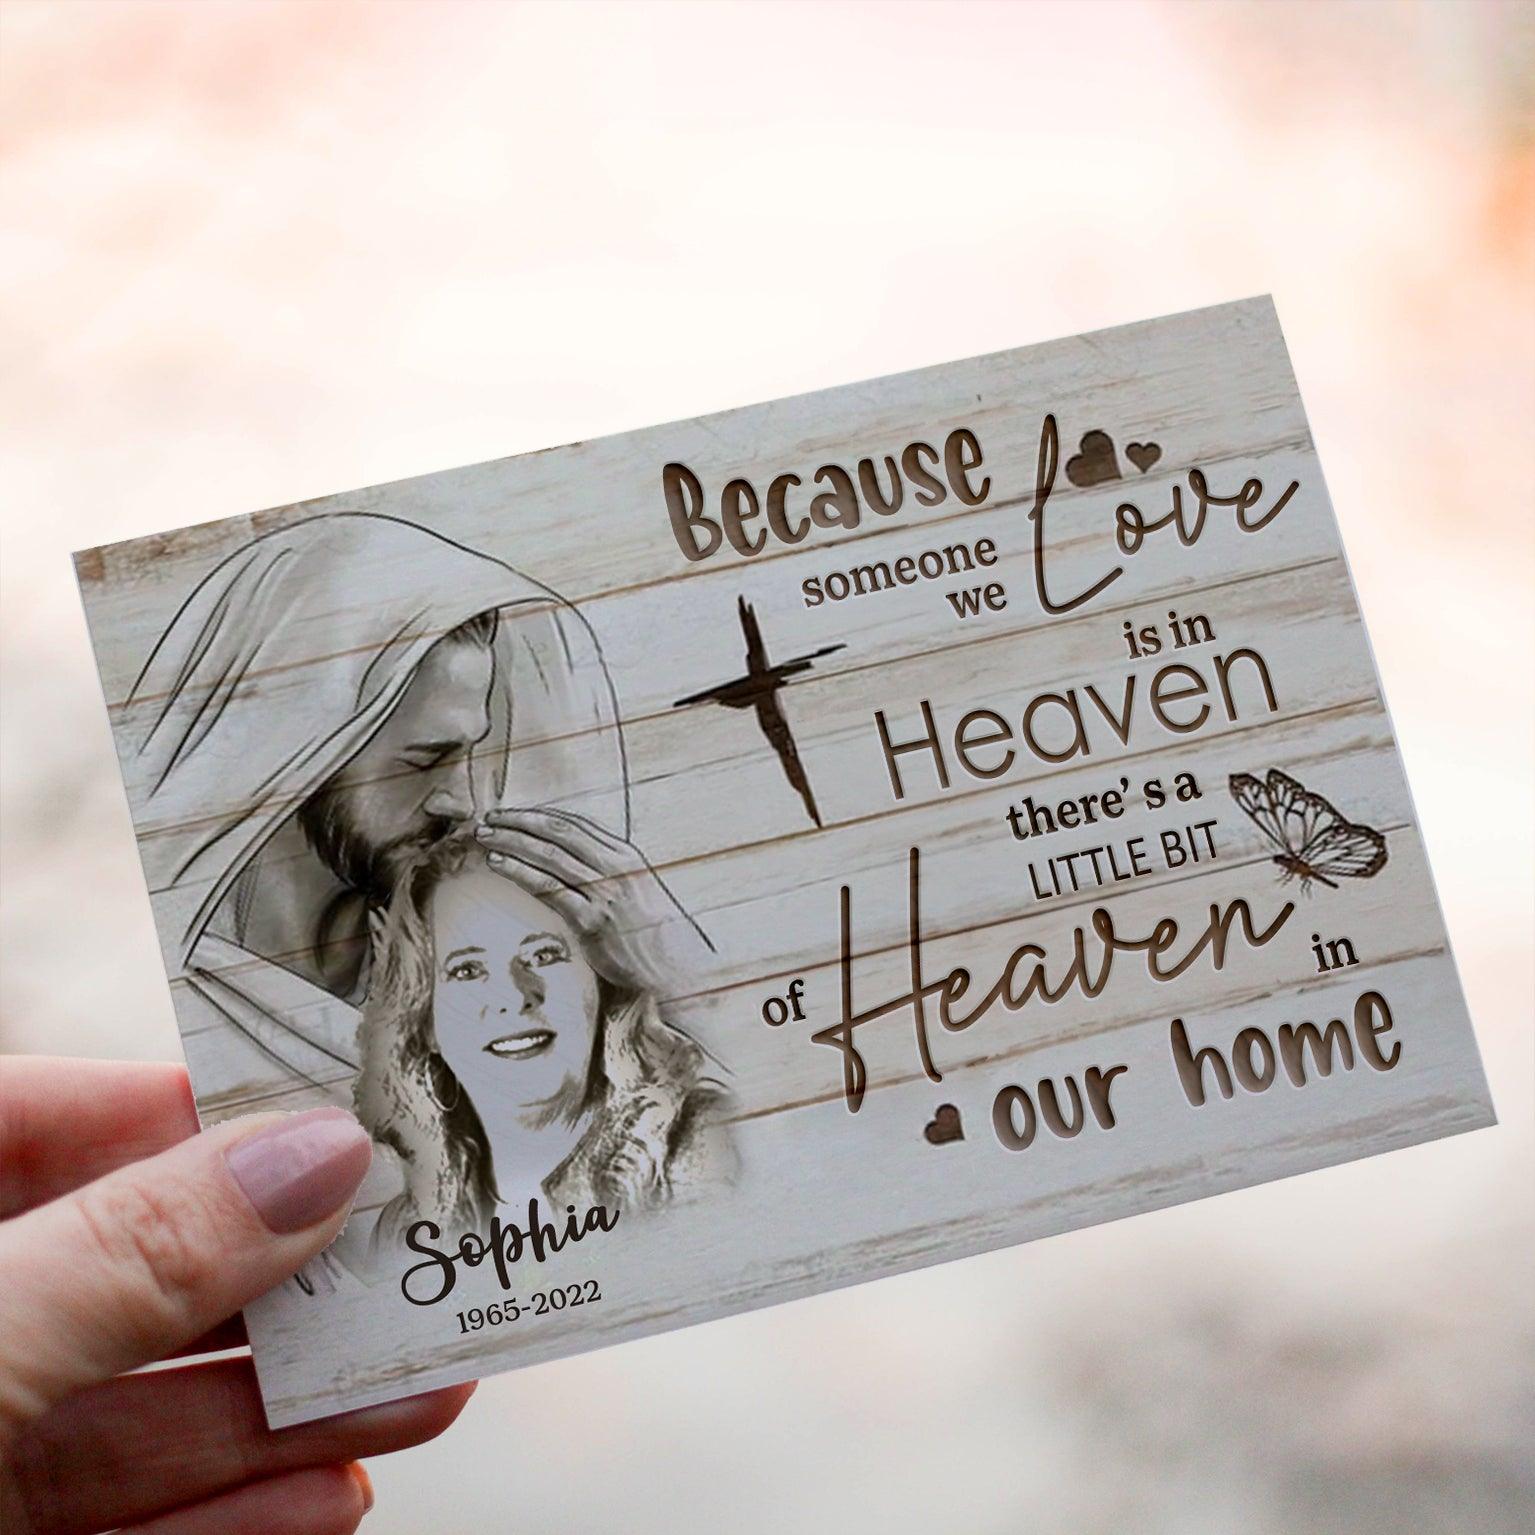 Because
someone
we Love
is in
Heaven
there's a
LITTLE BIT
of Heaven in
our home
Sophia
1965-2022